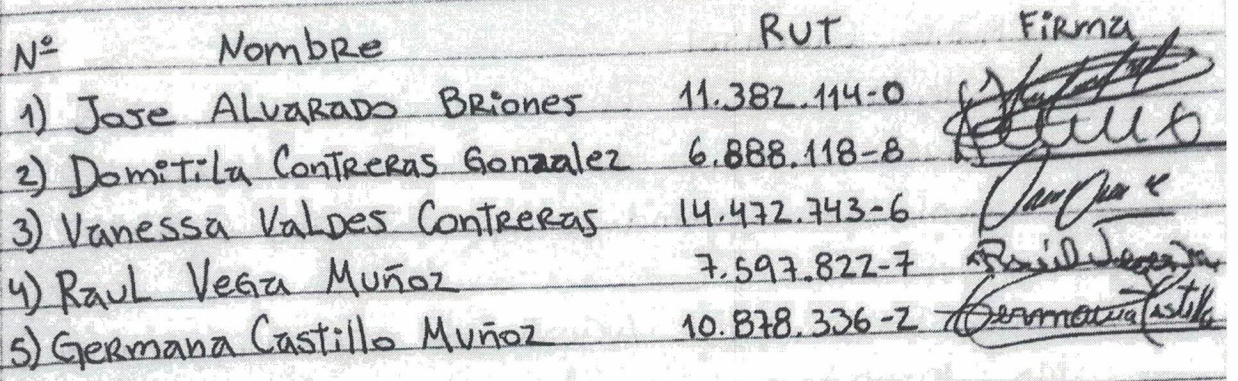 Nº Nombre RUT Firma
1) Jose Alvarado Briones 11.382.114-0
2) Domitila Contreras Gonzalez 6.888.118-8
3) Vanessa Valdes Contreras 14.472.743-6
4) Raul Vega Muñoz 7.597.822-7
5) Germana Castillo Muñoz 10.878.336-2 Germana Castillo